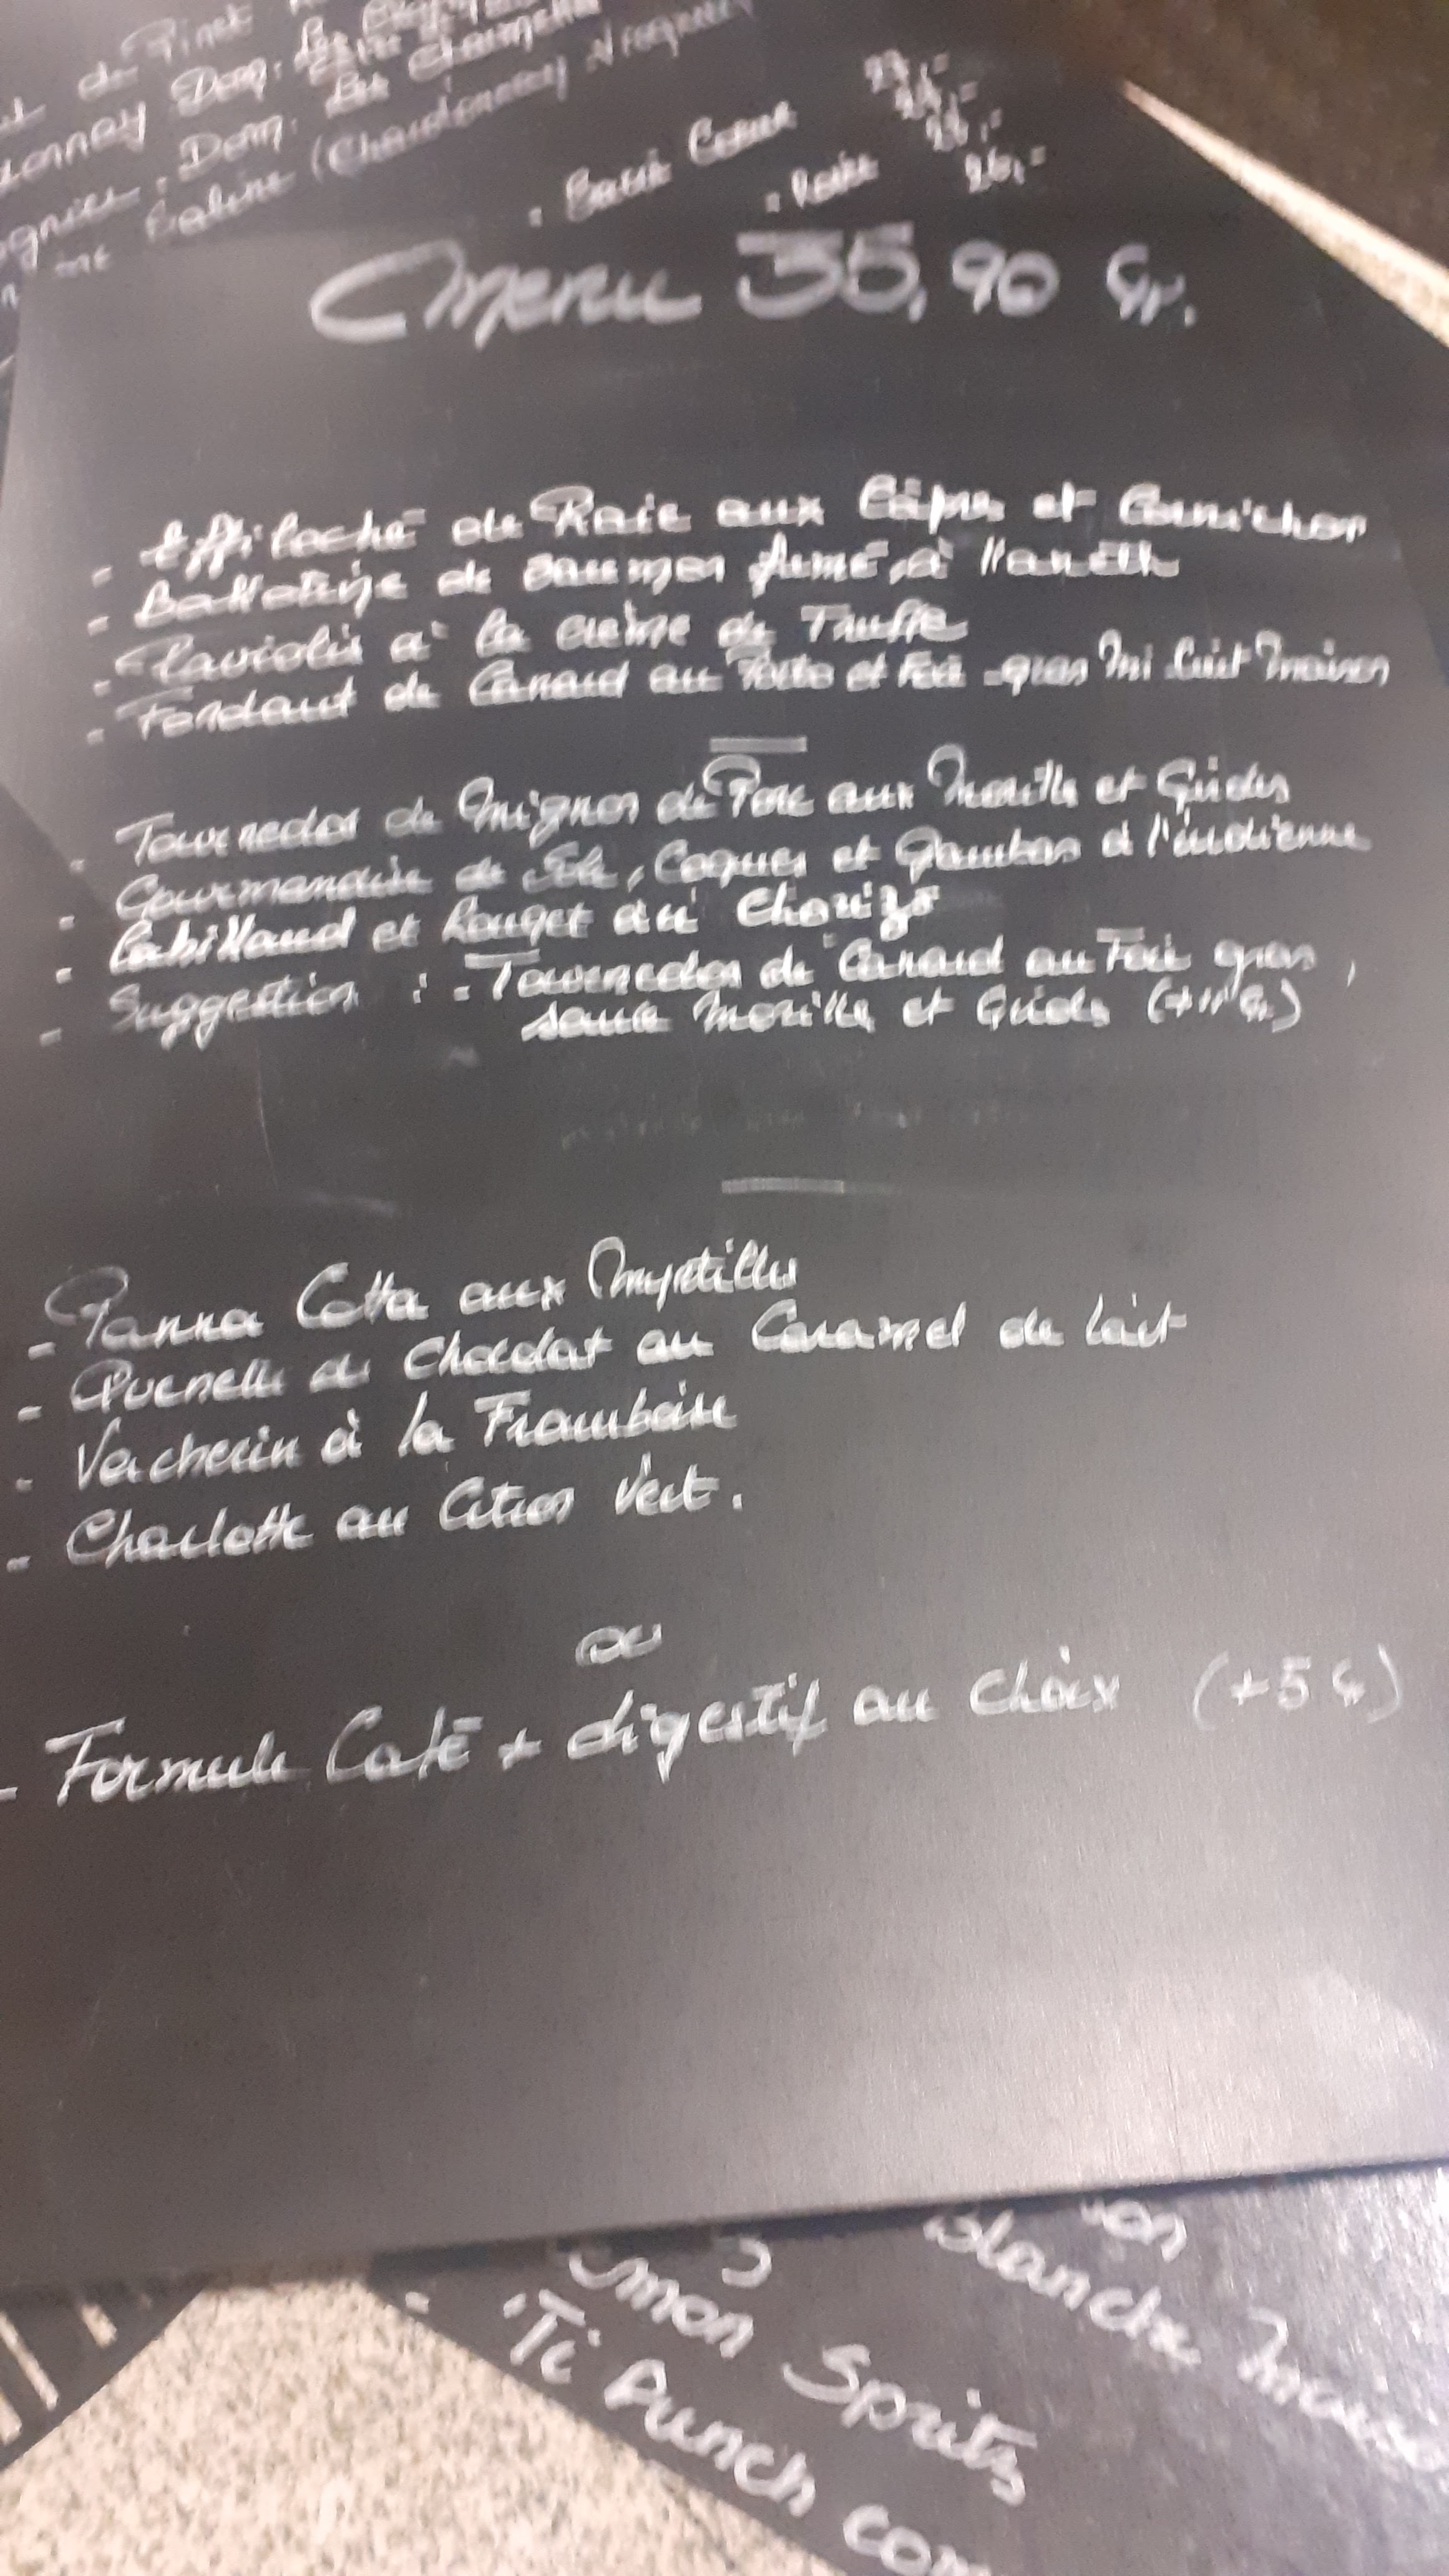 Dom. Les
Dom. Les
(Chardonnay
Menu 35,90 €r.
- Effiloché de Raie aux Câpres et Cornichon
- Ballotine de Saumon fumé, à l'Aneth
- Raviolis à la crème de Truffe
- Fondant de Canard au Porto et Foie-gras mi Cuit Maison
- Tournedos de Mignon de Porc aux Morilles et Girolles
- Gourmandise de Sole, Coques et Gambas à l'indienne
- Cabillaud et Rouget au Chorizo
- Suggestion : - Tournedos de Canard au Foie gras,
sauce Morilles et Girolles
- Panna Cotta aux Myrtilles
- Quenelle de Chocolat au Caramel de lait
- Vacherin à la Framboise
- Charlotte au Citron Vert.
ou
- Formule Café + digestif au choix (+5 €)
Blanche
Spritz
- 'Ti Punch